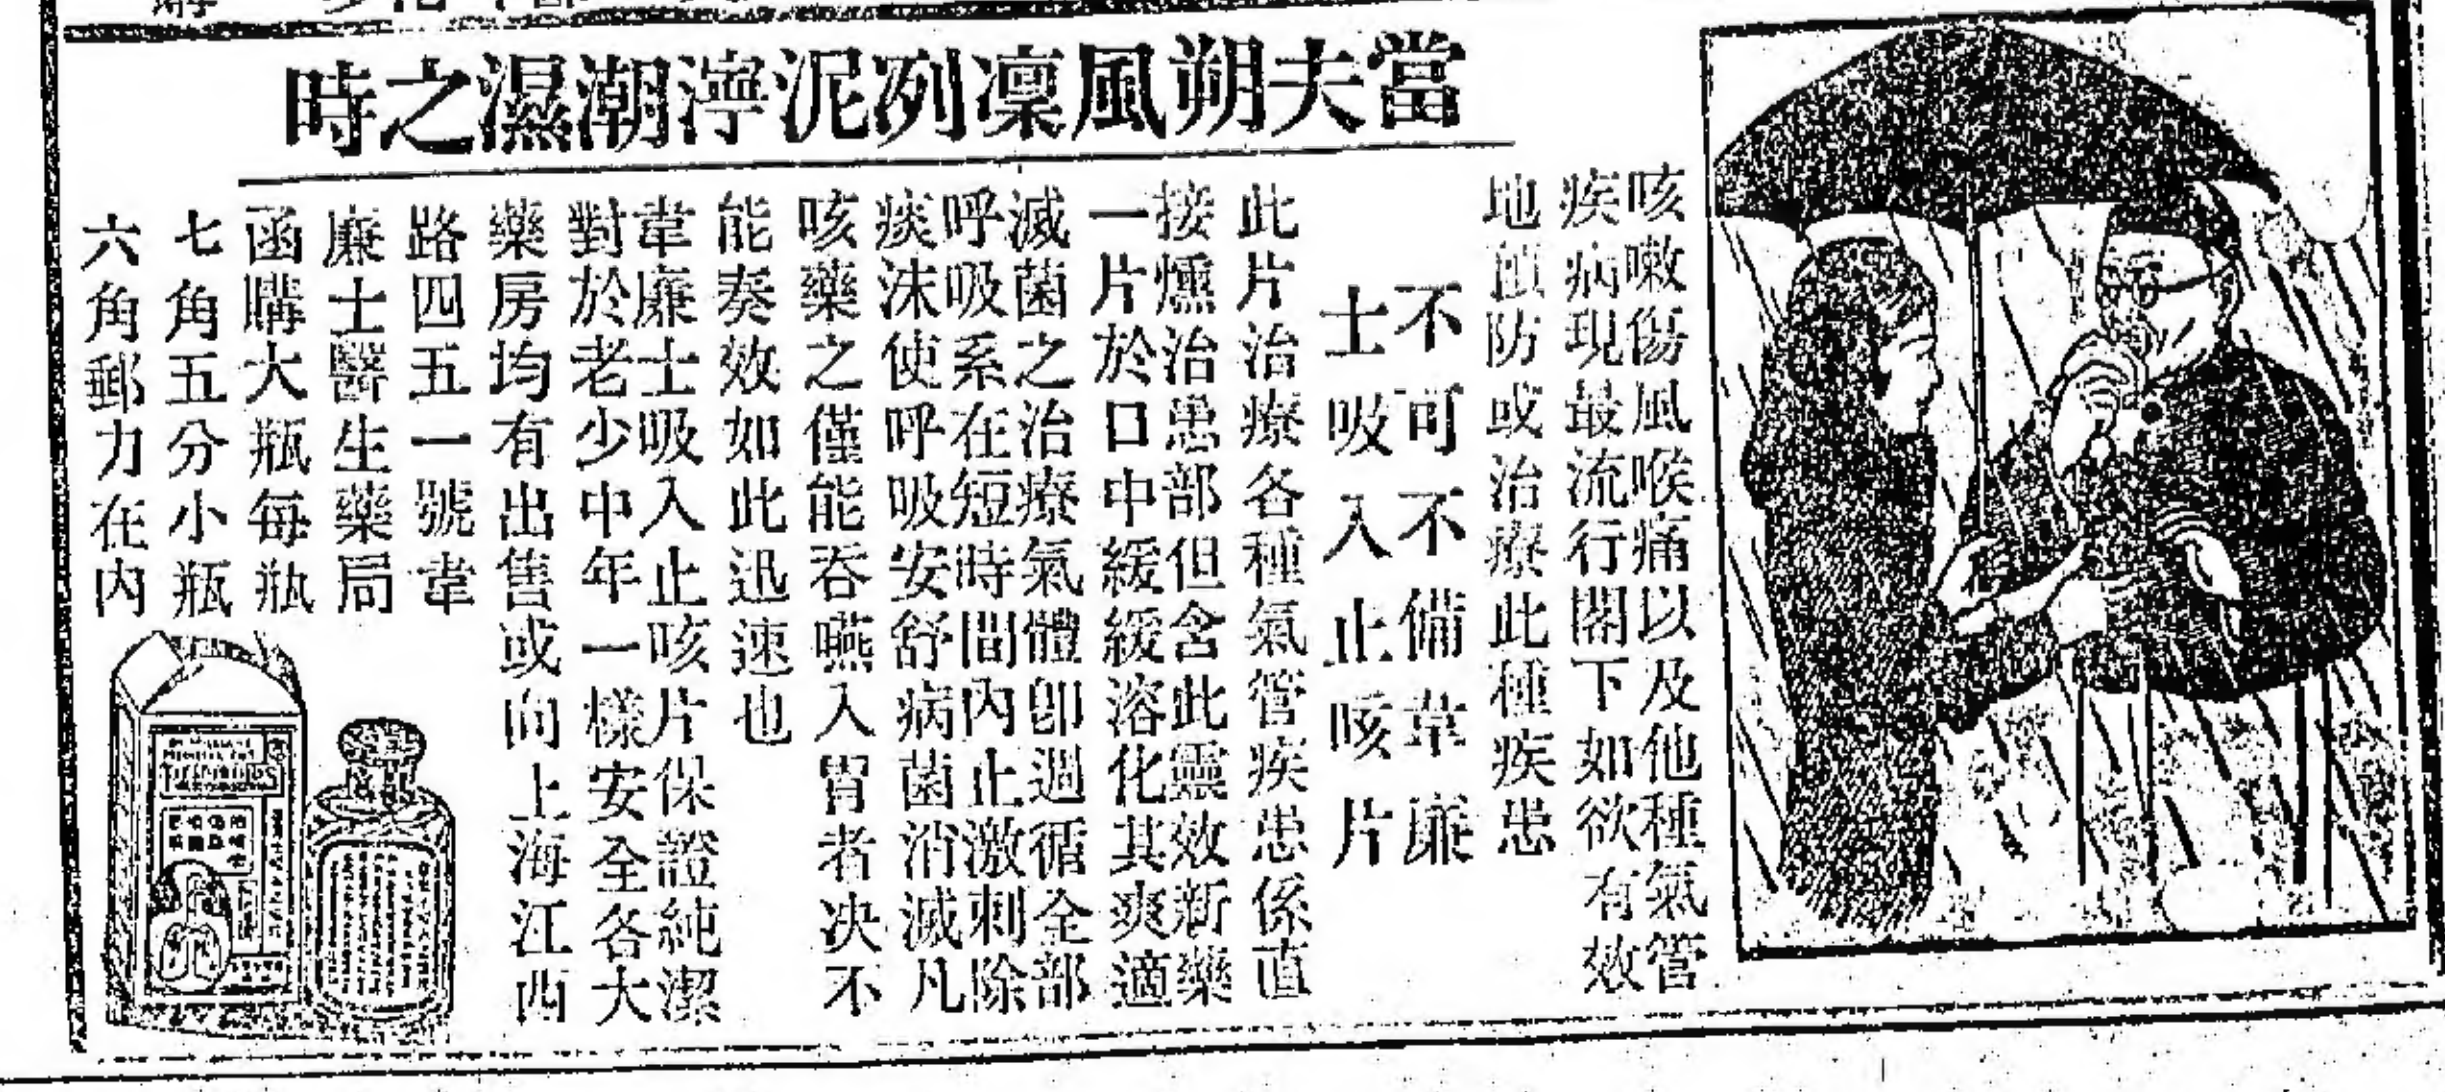 當夫朔風凜冽泥濘潮濕之時
咳嗽傷風喉痛以及他種氣管
疾病現最流行閣下如欲有效
地預防或治療此種疾患
不可不備韋廉
士吸入止咳片
此片治療各種氣管疾患係直
接燻治患部但含此靈效新藥
一片於口中緩緩溶化其爽適
滅菌之治療氣體卽週循全部
呼吸系在短時間內止激刺除
痰沫使呼吸安舒病菌消滅凡
咳藥之僅能吞嚥入胃者決不
能奏效如此迅速也
韋廉士吸入止咳片保證純潔
對於老少中年一樣安全各大
藥房均有出售或向上海江西
路四五一號韋
廉士醫生藥局
函購大瓶每瓶
七角五分小瓶
六角郵力在內